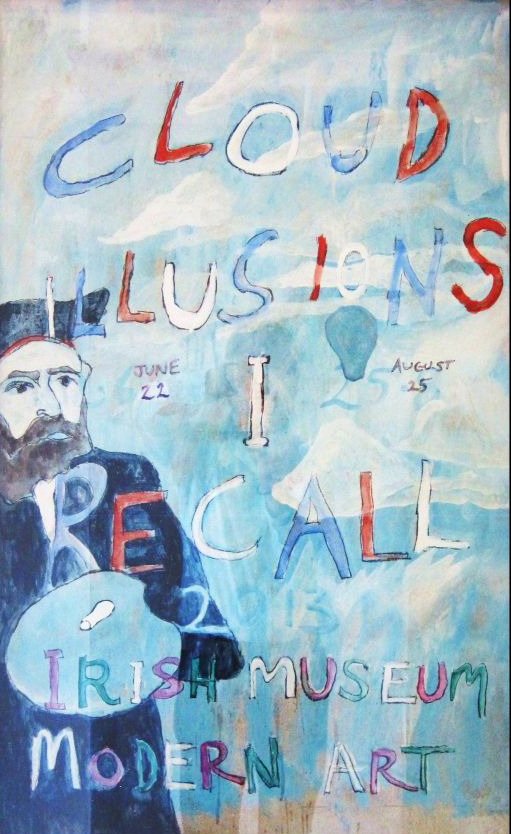 CLOUD
ILLUSIONS
JUNE
22
I
AUGUST
25
25
RECALL
2013
IRISH MUSEUM
MODERN ART